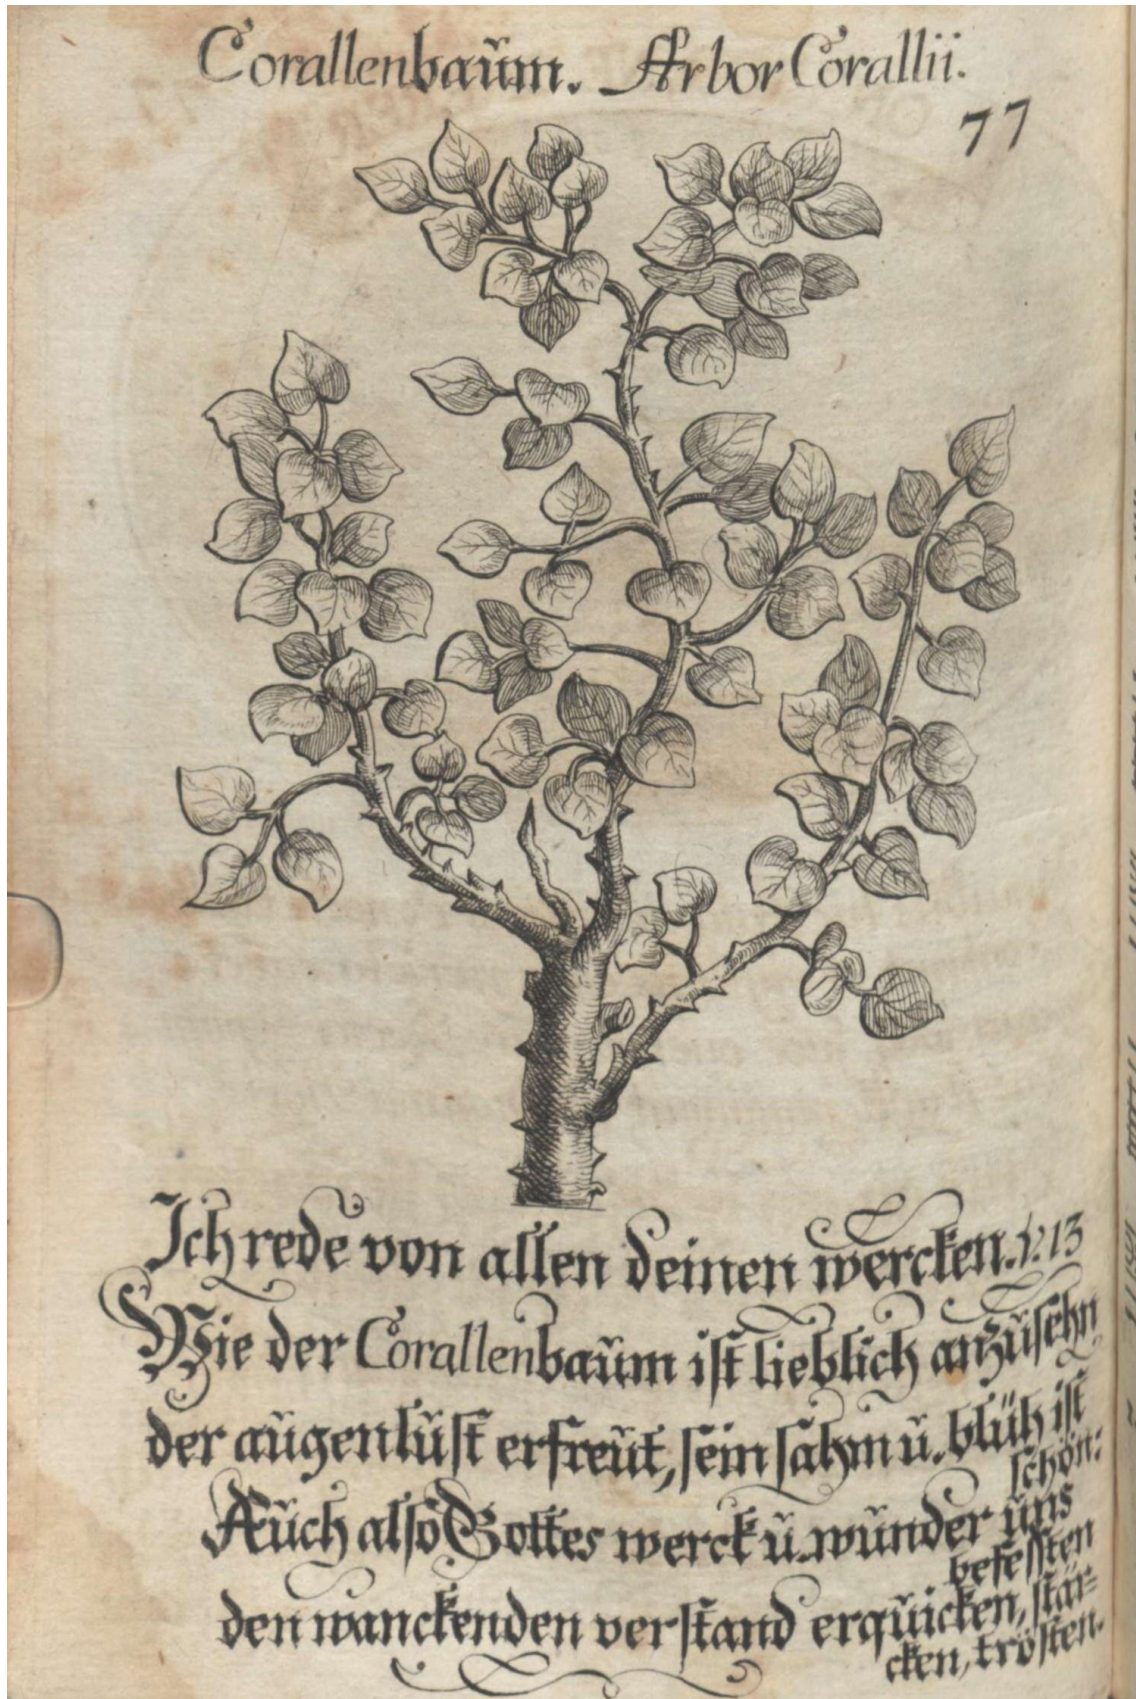 Corallenbaům. Arbor Corallii.
77
Ich rede von allen deinen wercken. v. 13
Wie der Corallenbaům ist lieblich anzůsehn,
der aůgen lůst erfreůt, sein sahm ů. blüh ist
schön:
Aůch also Gottes werck ů. wůnder ůns
befesten
den wanckenden verstand erqůicken, stär=
cken, trösten.